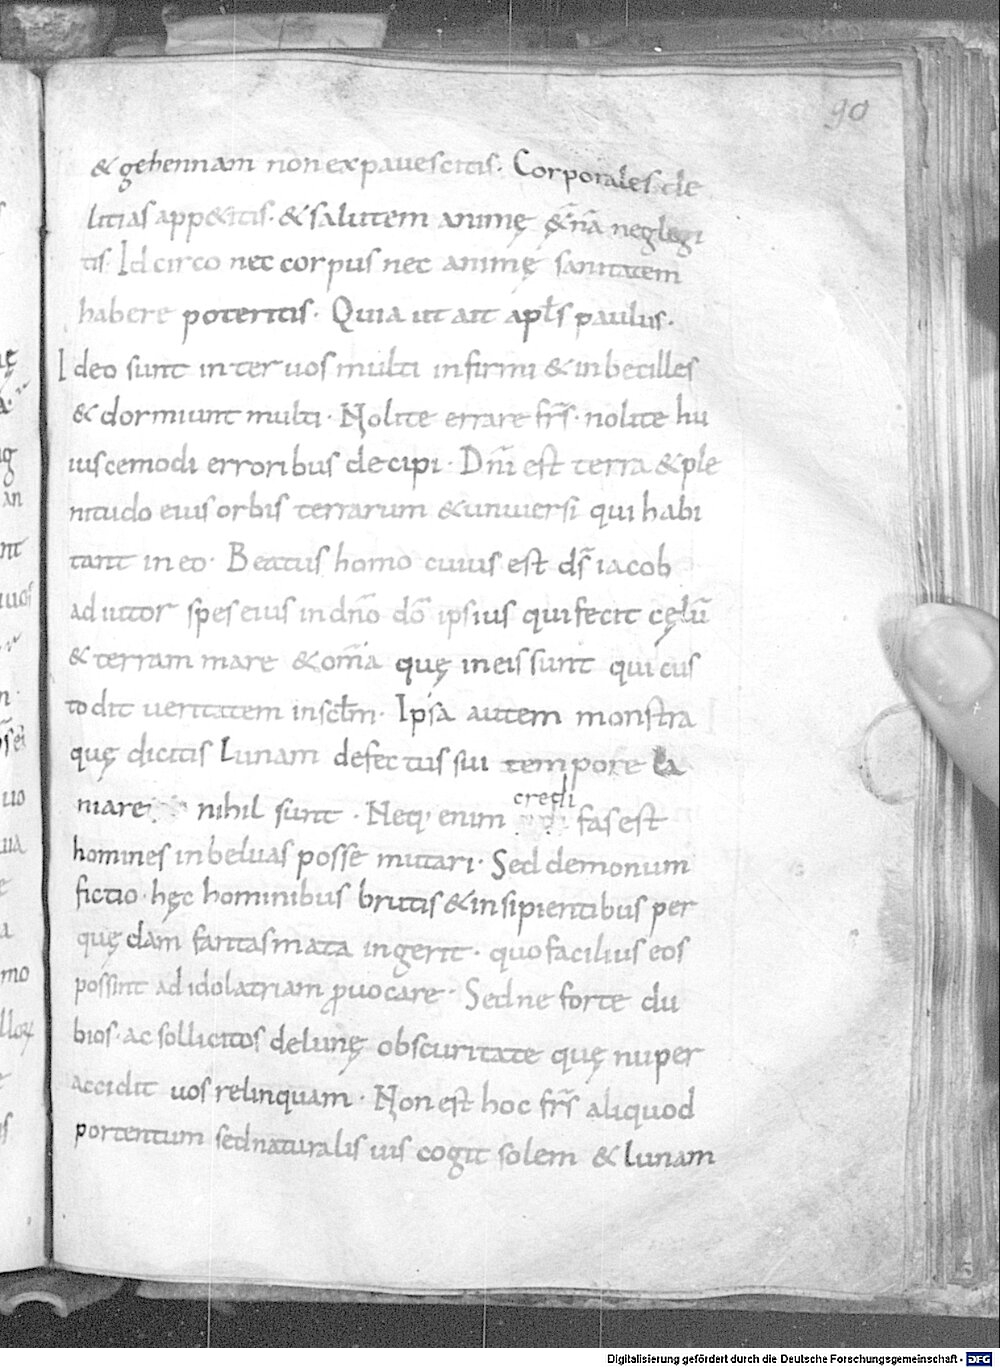 90
& gehennam non expauescitis. Corporales de
litias app&itis. & salutem animę &̄nā neglegi
tis. Idcirco nec corpus nec animę sanitatem
habere poteritis. Quia ut ait apłs paulus.
Ideo sunt inter uos multi infirmi & inbecilles
& dormiunt multi. Nolite errare fr̄s. nolite hu
iuscemodi erroribus decipi. Dn̄i est terra & ple
nitudo eius orbis terrarum & uniuersi qui habi
tant in eo. Beatus homo cuius est d̄s iacob
adiutor spes eius in dn̄o dō ipsius qui fecit cęlū
& terram mare & om̄a quę in eis sunt qui cus
todit ueritatem in scłm. Ipsa autem monstra
quę dicitis Lunam defectus sui tempore la
niare nihil sunt. Neq; enim credi fas est
homines in beluas posse mutari. Sed demonum
fictio. hęc hominibus brutis & insipientibus per
quędam fantasmata ingerit. quo facilius eos
possint ad idolatriam ꝓuocare. Sed ne forte du
bios. ac sollicitos de lunę obscuritate quę nuper
accidit uos relinquam. Non est hoc fr̄s aliquod
portentum sed naturalis uis cogit solem & lunam
Digitalisierung gefördert durch die Deutsche Forschungsgemeinschaft - DFG